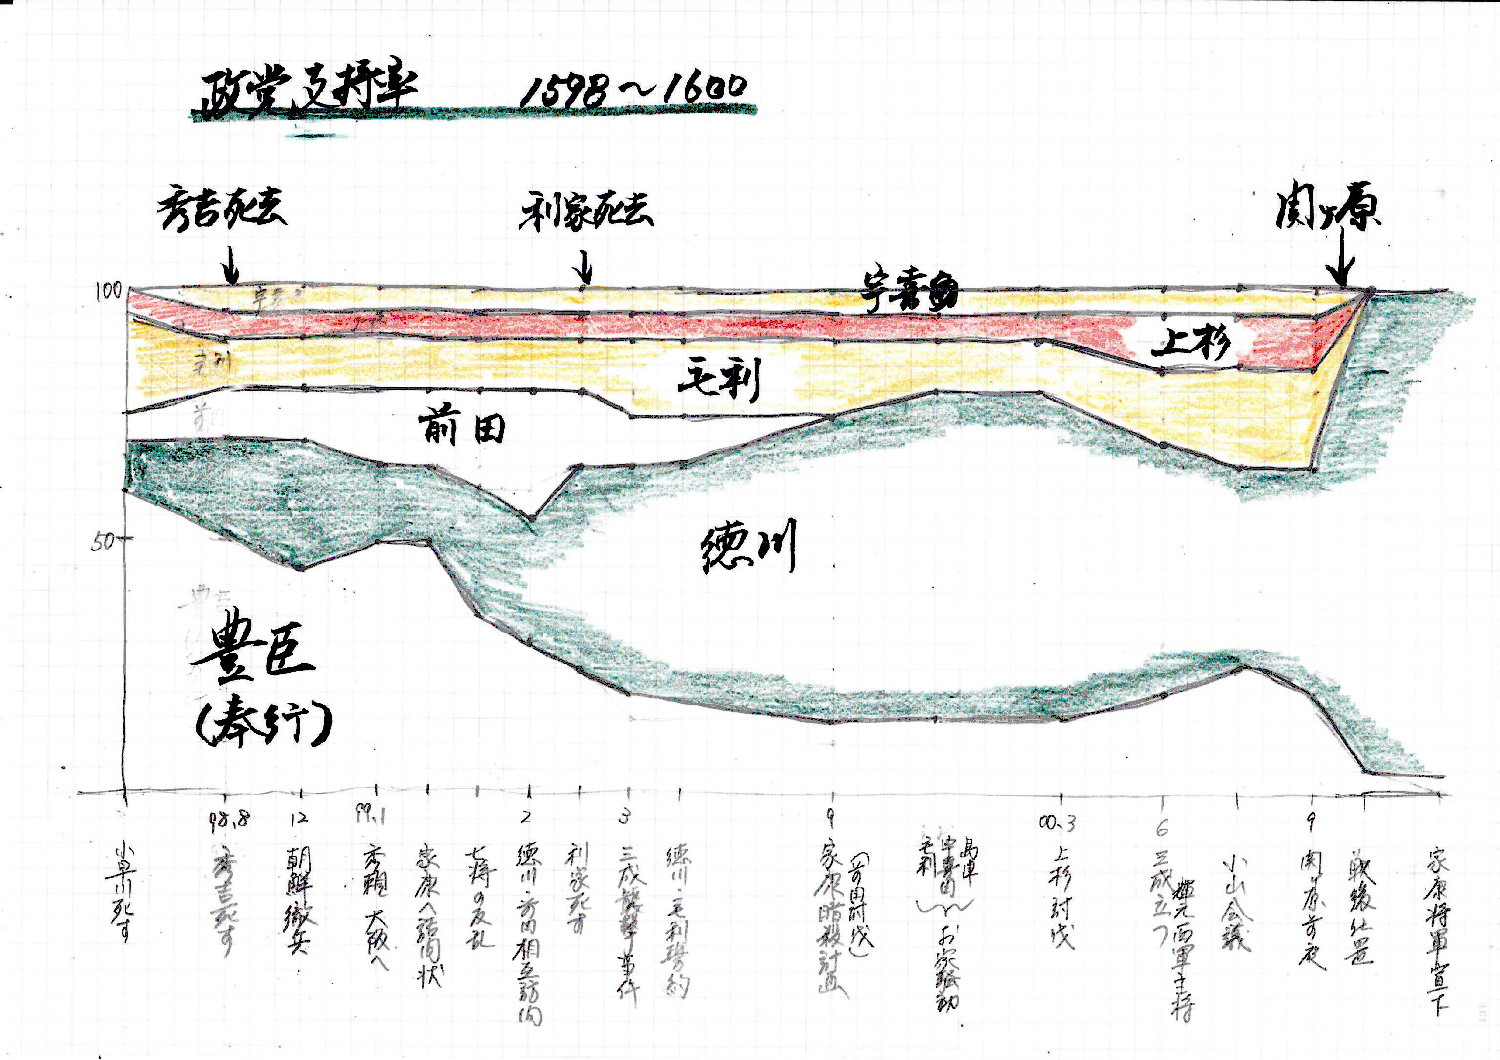 政党支持率 1598〜1600
秀吉死去
利家死去
関ヶ原
100
宇喜多
上杉
毛利
前田
50
徳川
豊臣
(奉行)
98.8
12
99.1
2
3
9
00.3
6
9
小早川死す
秀吉死す
朝鮮撤兵
秀頼 大阪へ
家康へ詰問状
七将の反乱
徳川・前田相互訪問
利家死す
三成襲撃事件
徳川・毛利誓約
家康暗殺計画
(前田討伐)
毛利
宇喜田
島津
お家騒動
上杉討伐
三成立つ
輝元西軍主将
小山会議
関ヶ原前夜
戦後仕置
家康将軍宣下